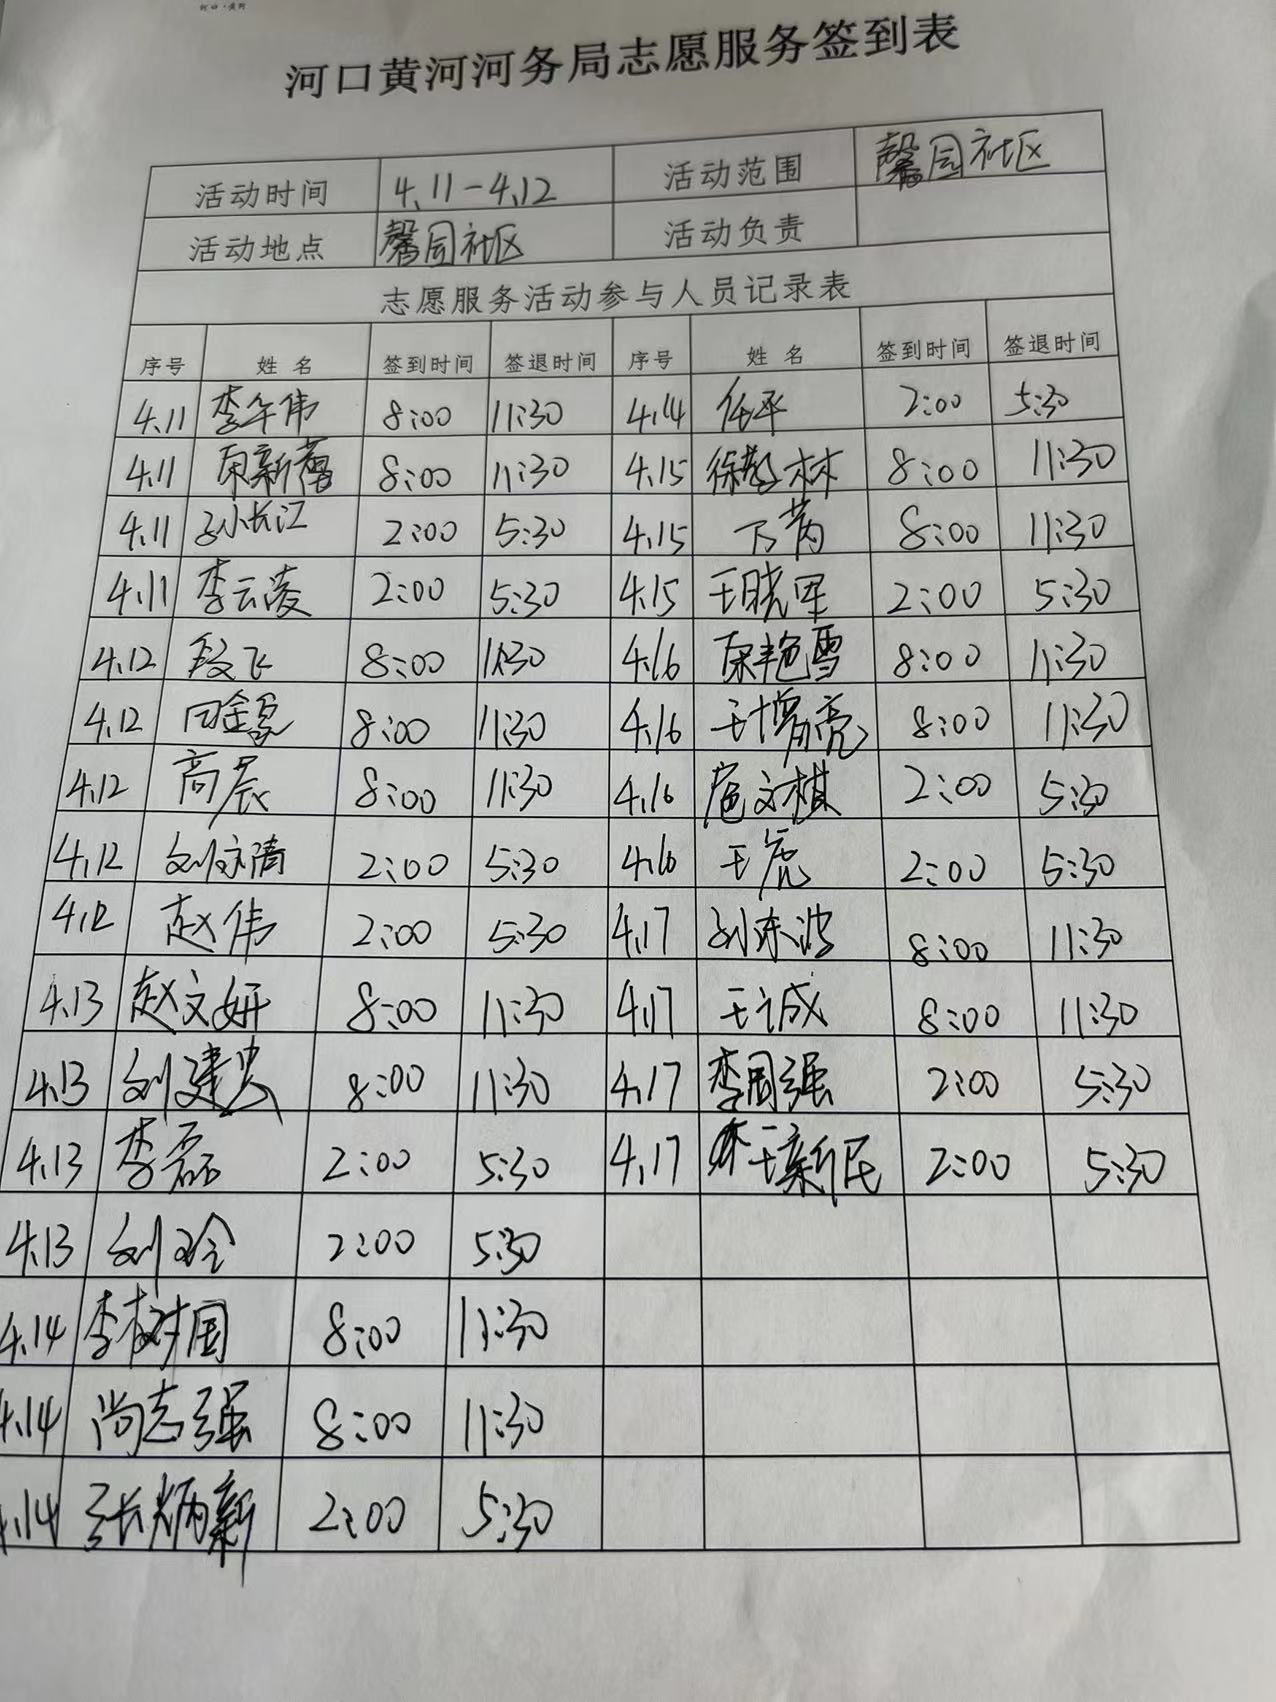 河口黄河河务局志愿服务签到表
活动时间 4.11-4.12 活动范围 馨园社区
活动地点 馨园社区 活动负责
志愿服务活动参与人员记录表
序号 姓名 签到时间 签退时间 序号 姓名 签到时间 签退时间
4.11 李午伟 8:00 11:30 4.14 任平 2:00 5:30
4.11 8:00 11:30 4.15 徐梦林 8:00 11:30
4.11 孙长江 2:00 5:30 4.15 8:00 11:30
4.11 李云凌 2:00 5:30 4.15 王晓军 2:00 5:30
4.12 段飞 8:00 11:30 4.16 艳雪 8:00 11:30
4.12 8:00 11:30 4.16 王增亮 8:00 11:30
4.12 高晨 8:00 11:30 4.16 扈文棋 2:00 5:30
4.12 刘清 2:00 5:30 4.16 王虎 2:00 5:30
4.12 赵伟 2:00 5:30 4.17 刘东波 8:00 11:30
4.13 赵文妍 8:00 11:30 4.17 王诚 8:00 11:30
4.13 刘建忠 8:00 11:30 4.17 李周强 2:00 5:30
4.13 李磊 2:00 5:30 4.17 王新民 2:00 5:30
4.13 刘玲 2:00 5:30
4.14 李树国 8:00 11:30
4.14 尚志强 8:00 11:30
4.14 张炳新 2:00 5:30